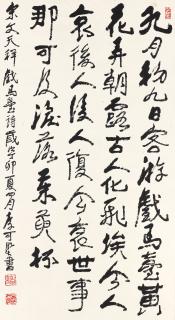 九月初九日客游戲馬臺黃
花弄朝露古人化飛埃今人
哀後人後人復今哀世事
那可及淚落茱萸杯
宋文天祥戲馬臺詩歲辛卯夏月書